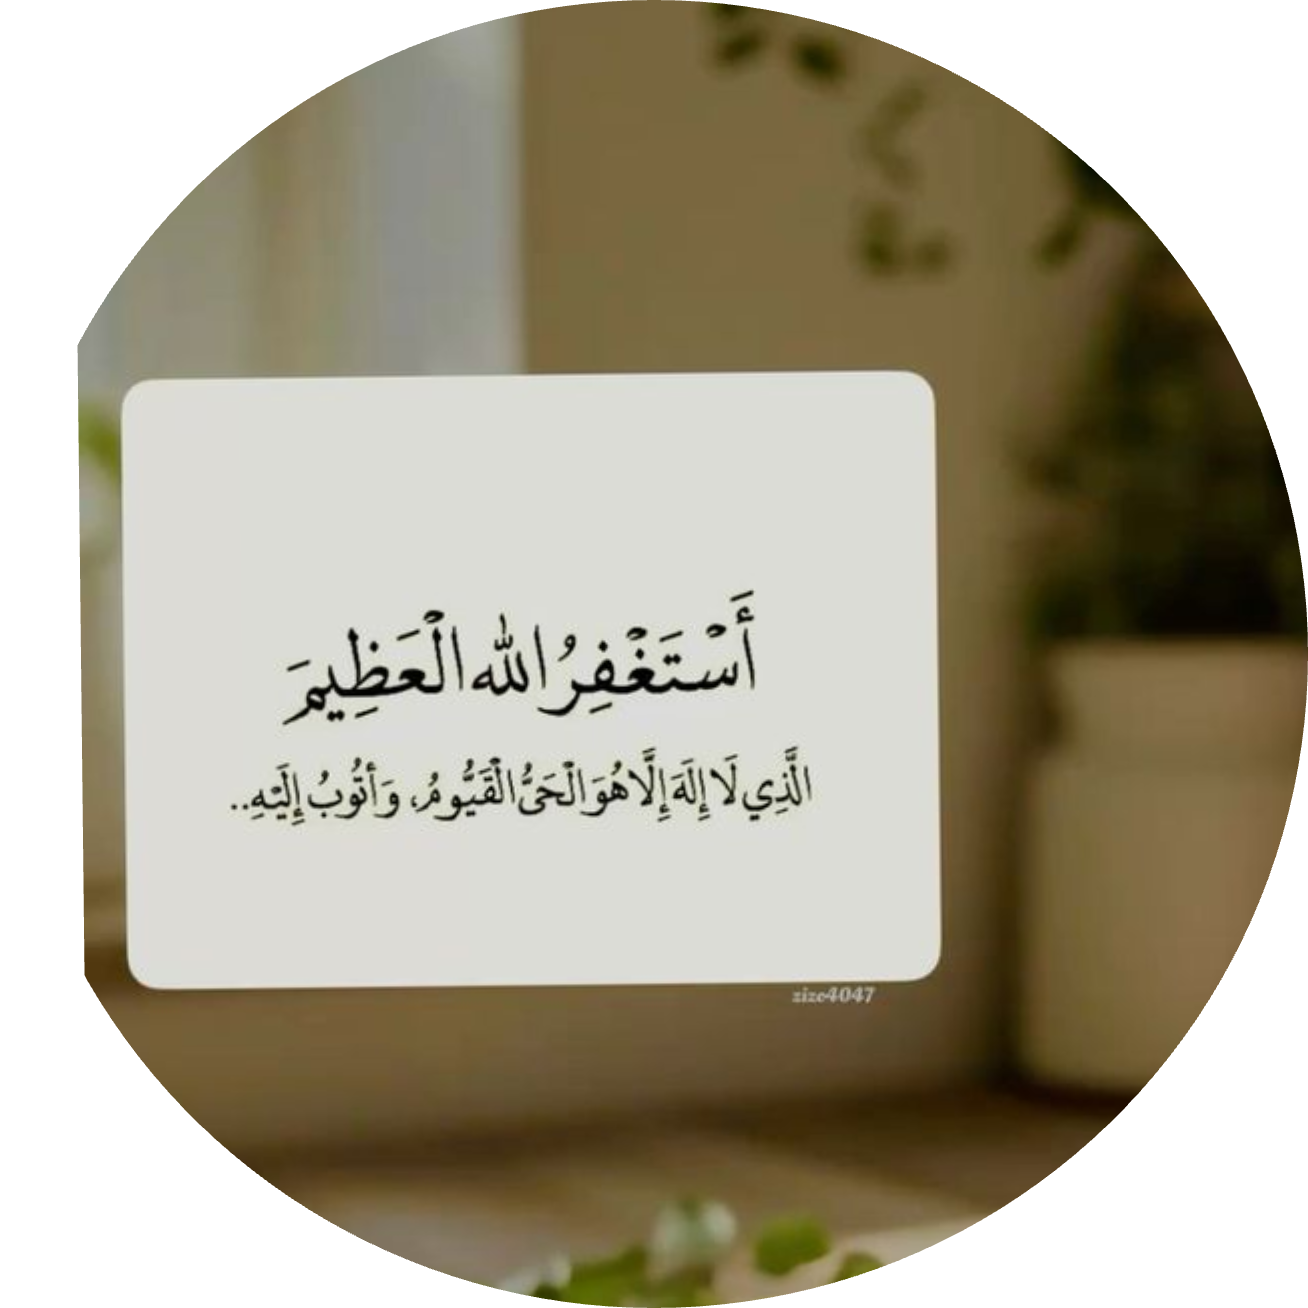 أَسْتَغْفِرُ الله الْعَظِيمَ
الَّذِي لَا إِلَهَ إِلَّا هُوَ الْحَيُّ الْقَيُّومُ، وَأَتُوبُ إِلَيْهِ..
zize4047